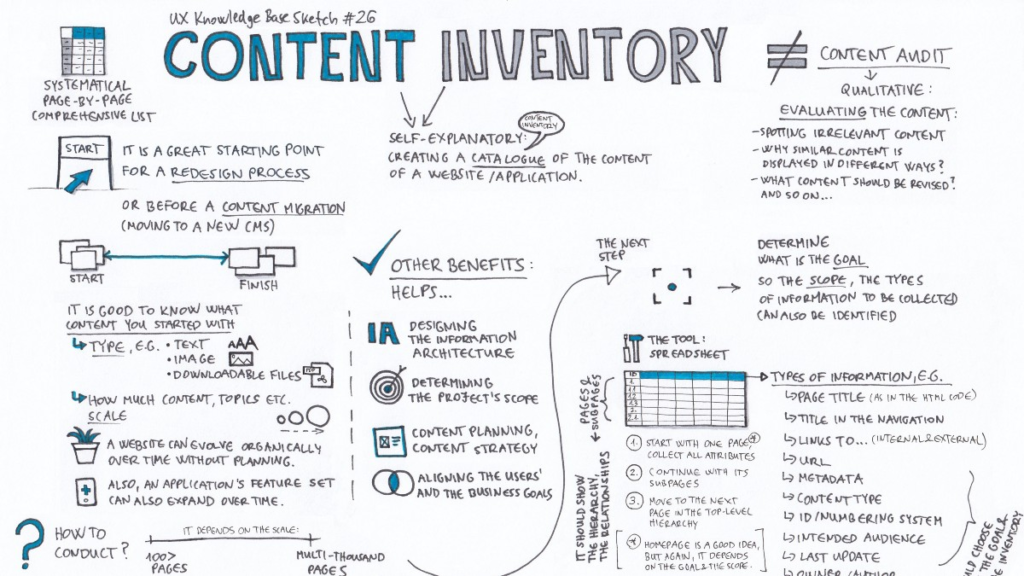 UX Knowledge Base Sketch #26
CONTENT INVENTORY
SYSTEMATICAL
PAGE-BY-PAGE
COMPREHENSIVE LIST
START
IT IS A GREAT STARTING POINT
FOR A REDESIGN PROCESS
OR BEFORE A CONTENT MIGRATION
(MOVING TO A NEW CMS)
START
FINISH
IT IS GOOD TO KNOW WHAT
CONTENT YOU STARTED WITH
TYPE, E.G. • TEXT
AAA
• IMAGE
• DOWNLOADABLE FILES
HOW MUCH CONTENT, TOPICS ETC.
SCALE
A WEBSITE CAN EVOLVE ORGANICALLY
OVER TIME WITHOUT PLANNING.
ALSO, AN APPLICATION'S FEATURE SET
CAN ALSO EXPAND OVER TIME.
? HOW TO
CONDUCT?
IT DEPENDS ON THE SCALE:
100>
PAGES
MULTI-THOUSAND
PAGES
CONTENT
INVENTORY
SELF-EXPLANATORY:
CREATING A CATALOGUE OF THE CONTENT
OF A WEBSITE/APPLICATION.
OTHER BENEFITS:
HELPS...
IA
DESIGNING
THE INFORMATION
ARCHITECTURE
DETERMINING
THE PROJECT'S SCOPE
CONTENT PLANNING,
CONTENT STRATEGY
ALIGNING THE USERS'
AND THE BUSINESS GOALS
≠ CONTENT AUDIT
QUALITATIVE:
EVALUATING THE CONTENT:
- SPOTTING IRRELEVANT CONTENT
- WHY SIMILAR CONTENT IS
DISPLAYED IN DIFFERENT WAYS?
- WHAT CONTENT SHOULD BE REVISED?
AND SO ON...
THE NEXT
STEP
DETERMINE
WHAT IS THE GOAL
SO THE SCOPE, THE TYPES
OF INFORMATION TO BE COLLECTED
CAN ALSO BE IDENTIFIED
THE TOOL:
SPREADSHEET
PAGES &
SUBPAGES
IT SHOULD SHOW
THE HIERARCHY,
THE RELATIONSHIPS
ID
1.
1.1
1.2
1.3
2.
2.1
1. START WITH ONE PAGE, *
COLLECT ALL ATTRIBUTES
2. CONTINUE WITH ITS
SUBPAGES
3. MOVE TO THE NEXT
PAGE IN THE TOP-LEVEL
HIERARCHY
* HOMEPAGE IS A GOOD IDEA,
BUT AGAIN, IT DEPENDS
ON THE GOAL & THE SCOPE.
TYPES OF INFORMATION, E.G.
PAGE TITLE (AS IN THE HTML CODE)
TITLE IN THE NAVIGATION
LINKS TO... (INTERNAL & EXTERNAL)
URL
METADATA
CONTENT TYPE
ID/NUMBERING SYSTEM
INTENDED AUDIENCE
LAST UPDATE
OWNER/AUTHOR
CHOOSE
THE GOAL &
INVENTORY